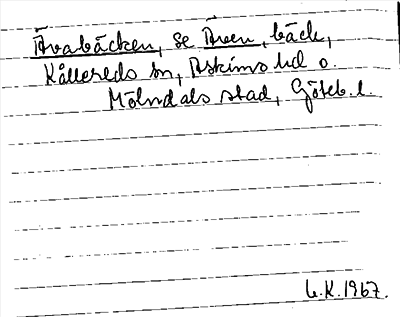 Åvabäcken, se Åven, bäck,
Kållereds sn, Askims hd o.
Mölndals stad, Göteb. l.
G.K. 1967.